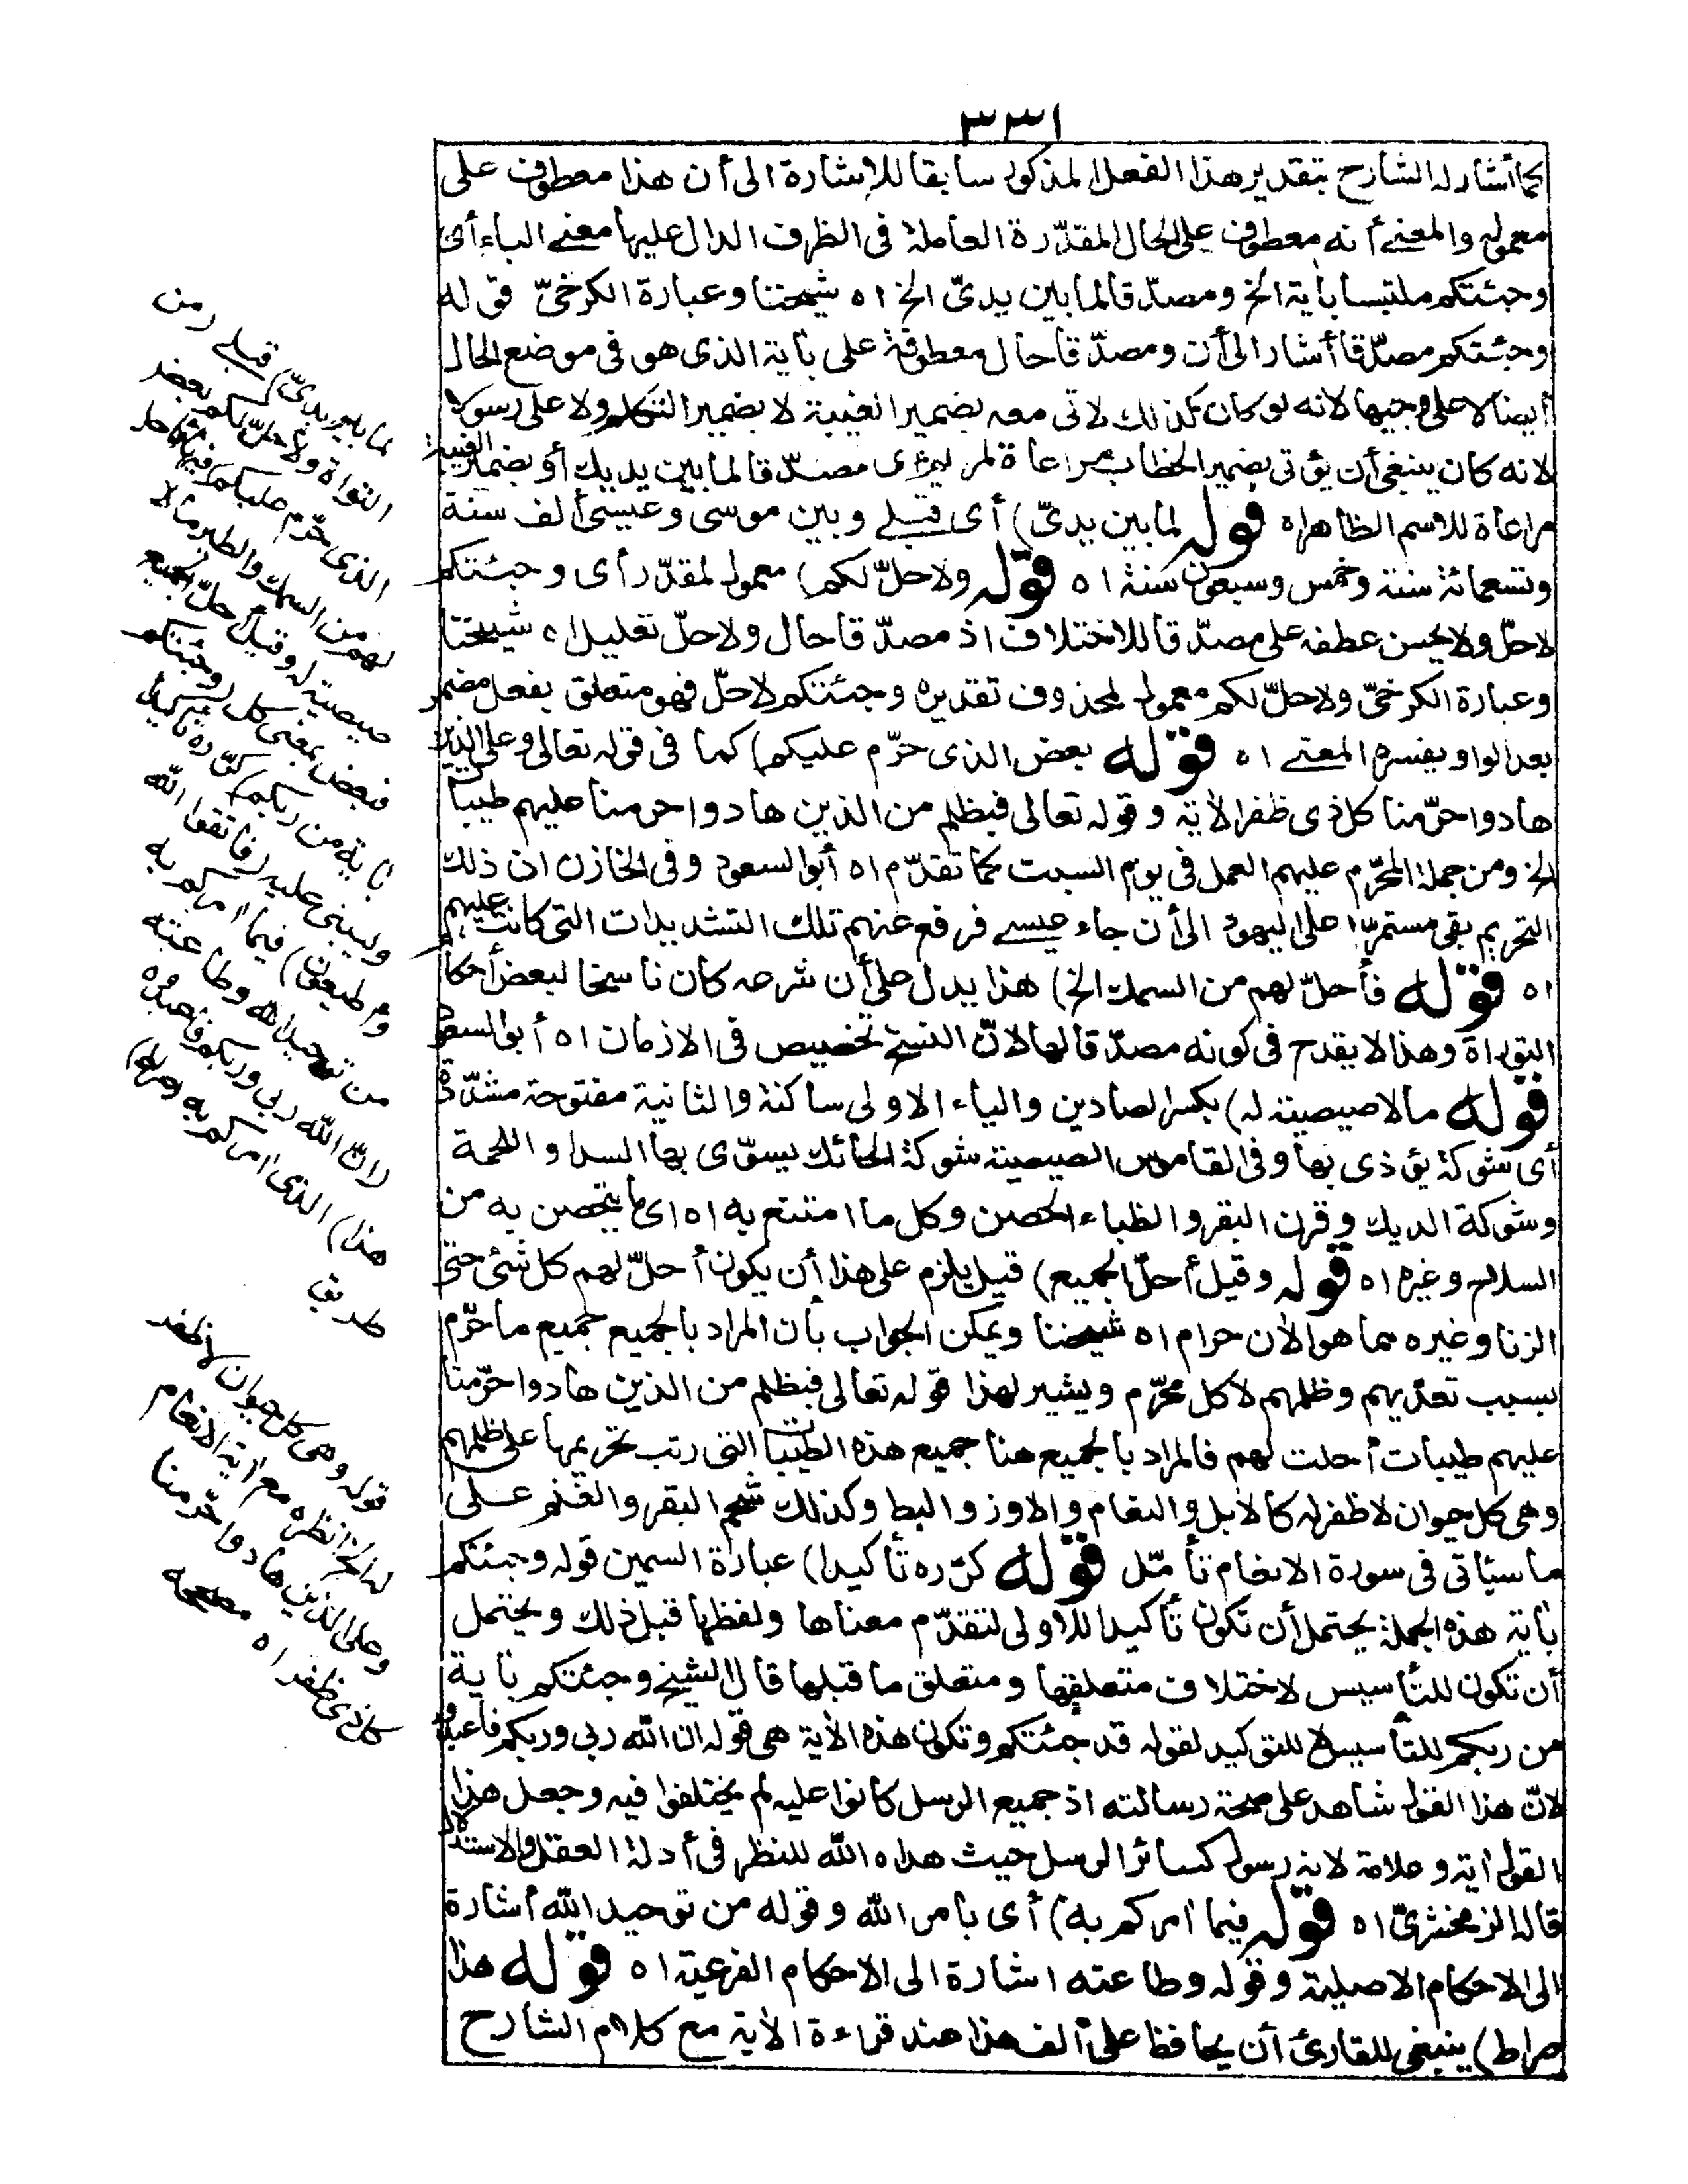 ٣٣١
كما أشار له الشارح بتقدير هذا الفعل المذكور سابقا للإشارة الى أن هذا معطوف على
معموله والمعنى أنه معطوف على الحال المقدّرة العاملة فى الظرف الدال عليها معنى الباء أى
وجئتكم ملتبسا بآية الخ ومصدّقا لما بين يدىّ الخ اه شيخنا وعبارة الكرخىّ قوله
وجئتكم مصدّقا أشار الى أن ومصدّقا حال معطوفة على بآية الذى هو فى موضع الحال
أيضا لا على وجيها لانه لو كان كذلك لاتى معه بضمير الغيبة لا بضمير التكلم ولا على رسولا
لانه كان ينبغى أن يؤتى بضمير الخطاب مراعاة لمريم أى مصدّقا لما بين يديك أو بضمير الغيبة
مراعاة للاسم الظاهر اه قوله لما بين يدىّ) أى قبلى وبين موسى وعيسى ألف سنة
وتسعمائة سنة وخمس وسبعون سنة اه قوله ولاحلّ لكم) معمول لمقدّر أى وجئتكم
لاحلّ ولا يحسن عطفه على مصدّقا للاختلاف اذ مصدّقا حال ولاحلّ تعليل اه شيخنا
وعبارة الكرخىّ ولاحلّ لكم معمول لمحذوف تقديره وجئتكم لاحلّ فهو متعلق بفعل مضمر
بعد الواو يفسره المعنى اه قوله بعض الذى حرّم عليكم) كما فى قوله تعالى وعلى الذين
هادوا حرّمنا كل ذى ظفر الآية وقوله تعالى فبظلم من الذين هادوا حرمنا عليهم طيبات
الخ ومن جملة المحرّم عليهم العمل فى يوم السبت كما تقدّم اه أبو السعود وفى الخازن ان ذلك
التحريم بقى مستمرّا على اليهود الى أن جاء عيسى فرفع عنهم تلك التشديدات التى كانت عليهم
اه قوله فأحلّ لهم من السمك الخ) هذا يدل على أن شرعه كان ناسخا لبعض أحكام
التوراة وهذا لا يقدح فى كونه مصدّقا لها لانّ النسخ تخصيص فى الازمان اه أبو السعود
قوله مالا صيصية له) بكسر الصادين والياء الاولى ساكنة والثانية مفتوحة مشدّدة
أى شوكة يؤذى بها وفى القاموس الصيصية شوكة الحائك يسوّى بها السدا واللحمة
وشوكة الديك وقرن البقر والظباء الحصن وكل ما امتنع به اه اى ما يتحصن به من
السلاح وغيره اه قوله وقيل أحلّ الجميع) قيل يلزم على هذا أن يكون أحلّ لهم كل شئ حتى
الزنا وغيره مما هو الآن حرام اه شيخنا ويمكن الجواب بأن المراد بالجميع جميع ما حرّم
بسبب تعدّيهم وظلمهم لا كل محرّم ويشير لهذا قوله تعالى فبظلم من الذين هادوا حرّمنا
عليهم طيبات أحلت لهم فالمراد بالجميع هنا جميع هذه الطيبات التى رتب تحريمها على ظلمهم
وهى كل حيوان لا ظفر له كالابل والنعام والاوز والبط وكذلك شحم البقر والغنم على
ما سيأتى فى سورة الانعام تأمّل قوله كرّره تأكيدا) عبارة السمين قوله وجئتكم
بآية هذه الجملة يحتمل أن تكون تأكيدا للاولى لتقدّم معناها ولفظها قبل ذلك ويحتمل
أن تكون للتأسيس لاختلاف متعلقها ومتعلق ما قبلها قال الشيخ وجئتكم بآية
من ربكم للتأسيس لا للتوكيد لقوله قد جئتكم وتكون هذه الآية هى قوله ان الله ربى وربكم فاعبدوه
لانّ هذا القول شاهد على صحة رسالته اذ جميع الرسل كانوا عليه لم يختلفوا فيه وجعل هذا
القول آية وعلامة لانه رسول كسائر الرسل حيث هداه الله للنظر فى أدلة العقل والاستدلال
قاله الزمخشرىّ اه قوله فيما أمركم به) أى بامر الله وقوله من توحيد الله أشارة
الى الاحكام الاصلية وقوله وطاعته اشارة الى الاحكام الفرعية اه قوله هذا
صراط) ينبغى للقارئ أن يحافظ على ألف هذا عند قراءة الآية مع كلام الشارح
لما بين يدىّ) قبلى (من
التوراة ولأحلّ لكم بعض
الذى حرّم عليكم) فيها فأحل
لهم من السمك والطير مالا
صيصية له وقيل أحلّ الجميع
فبعض بمعنى كل (وجئتكم
بآية من ربكم) كرّره تأكيدا
وليبنى عليه (فاتقوا الله
وأطيعون) فيما أمركم به
من توحيد الله وطاعته
(انّ الله ربى وربكم فاعبدوه
هذا) الذى أمركم به (صراط)
طريق
قوله وهى كل حيوان لا ظفر
له الخ انظره مع آية الانعام
وعلى الذين هادوا حرّمنا
كل ذى ظفر اه مصححه